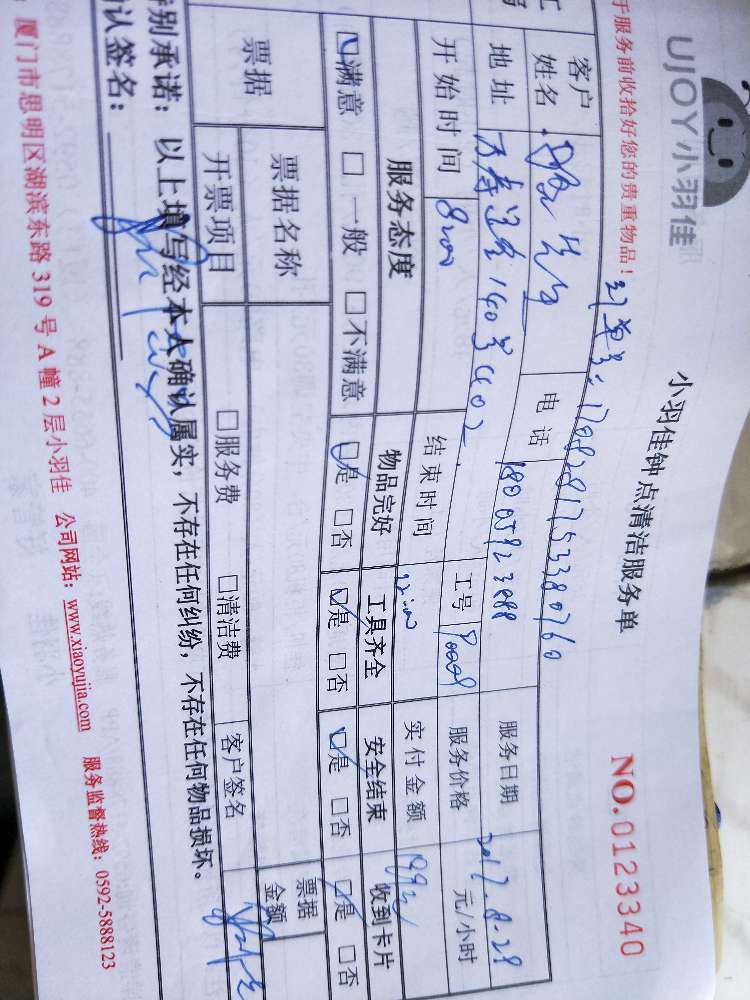 UJOY小羽佳
小羽佳钟点清洁服务单
NO.0123340
于服务前收拾好您的贵重物品！
订单号：17082817533380760
客户姓名
电话
服务日期 2017.8.28
地址
工号
服务价格 元/小时
开始时间 8:00
结束时间 12:00
实付金额
服务态度 物品完好 工具齐全 安全结束 收到卡片
☑满意 □一般 □不满意 ☑是 □否 ☑是 □否 ☑是 □否 ☑是 □否
票据 票据名称 票据金额
开票项目 □服务费 □清洁费 客户签名
特别承诺：以上填写经本人确认属实，不存在任何纠纷，不存在任何物品损坏。
确认签名：
厦门市思明区湖滨东路 319 号 A 幢 2 层小羽佳 公司网站：www.xiaoyujia.com 服务监督热线：0592-5888123